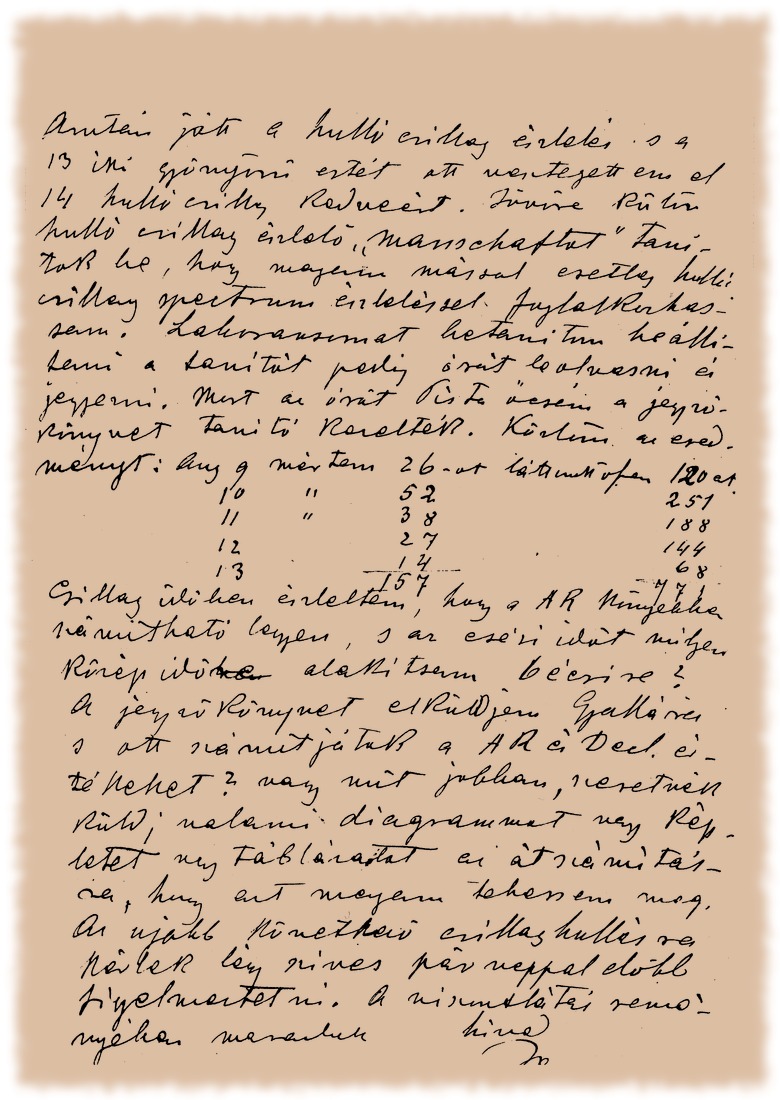 Azután jött a hulló csillag észlelés s a
13 iki gyönyörű estét ott vesztegettem el
14 hulló csillag kedveért. Jövőre külön
hulló csillag észlelő „Mannschaftot" taní-
tok be, hogy magam mással esetleg hulló
csillag spectrum észleléssel foglalkozhas-
sam. Laboransomat betanítom beállí-
tani a tanítót pedig órát leolvasni és
jegyezni. Most az órát Pista öcsém a jegyző-
könyvet tanító kezelték. Közlöm az ered-
ményt: Aug 9 néztem 26-ot láttunk 120 at
10 " 52 251
11 " 38 188
12 27 144
13 14 68
157 771
Csillag időben észleltem, hogy a AR könyekbe
számítható legyen, s az esési időt milyen
közép időbe alakítsam bécsire?
A jegyzőkönyvet elküldjem Gyallára
s ott számítjátok a AR és Decl. ér-
tékeket? vagy mit jobban szeretnék
küldj valami diagrammot vagy kép-
letet vagy táblázatot az átszámítás-
ra, hogy ezt magam tehessem meg.
Az ujabb következő csillaghullásra
kérlek légy szives pár nappal előbb
figyelmeztetni. A viszontlátás remé-
nyében maradok híved